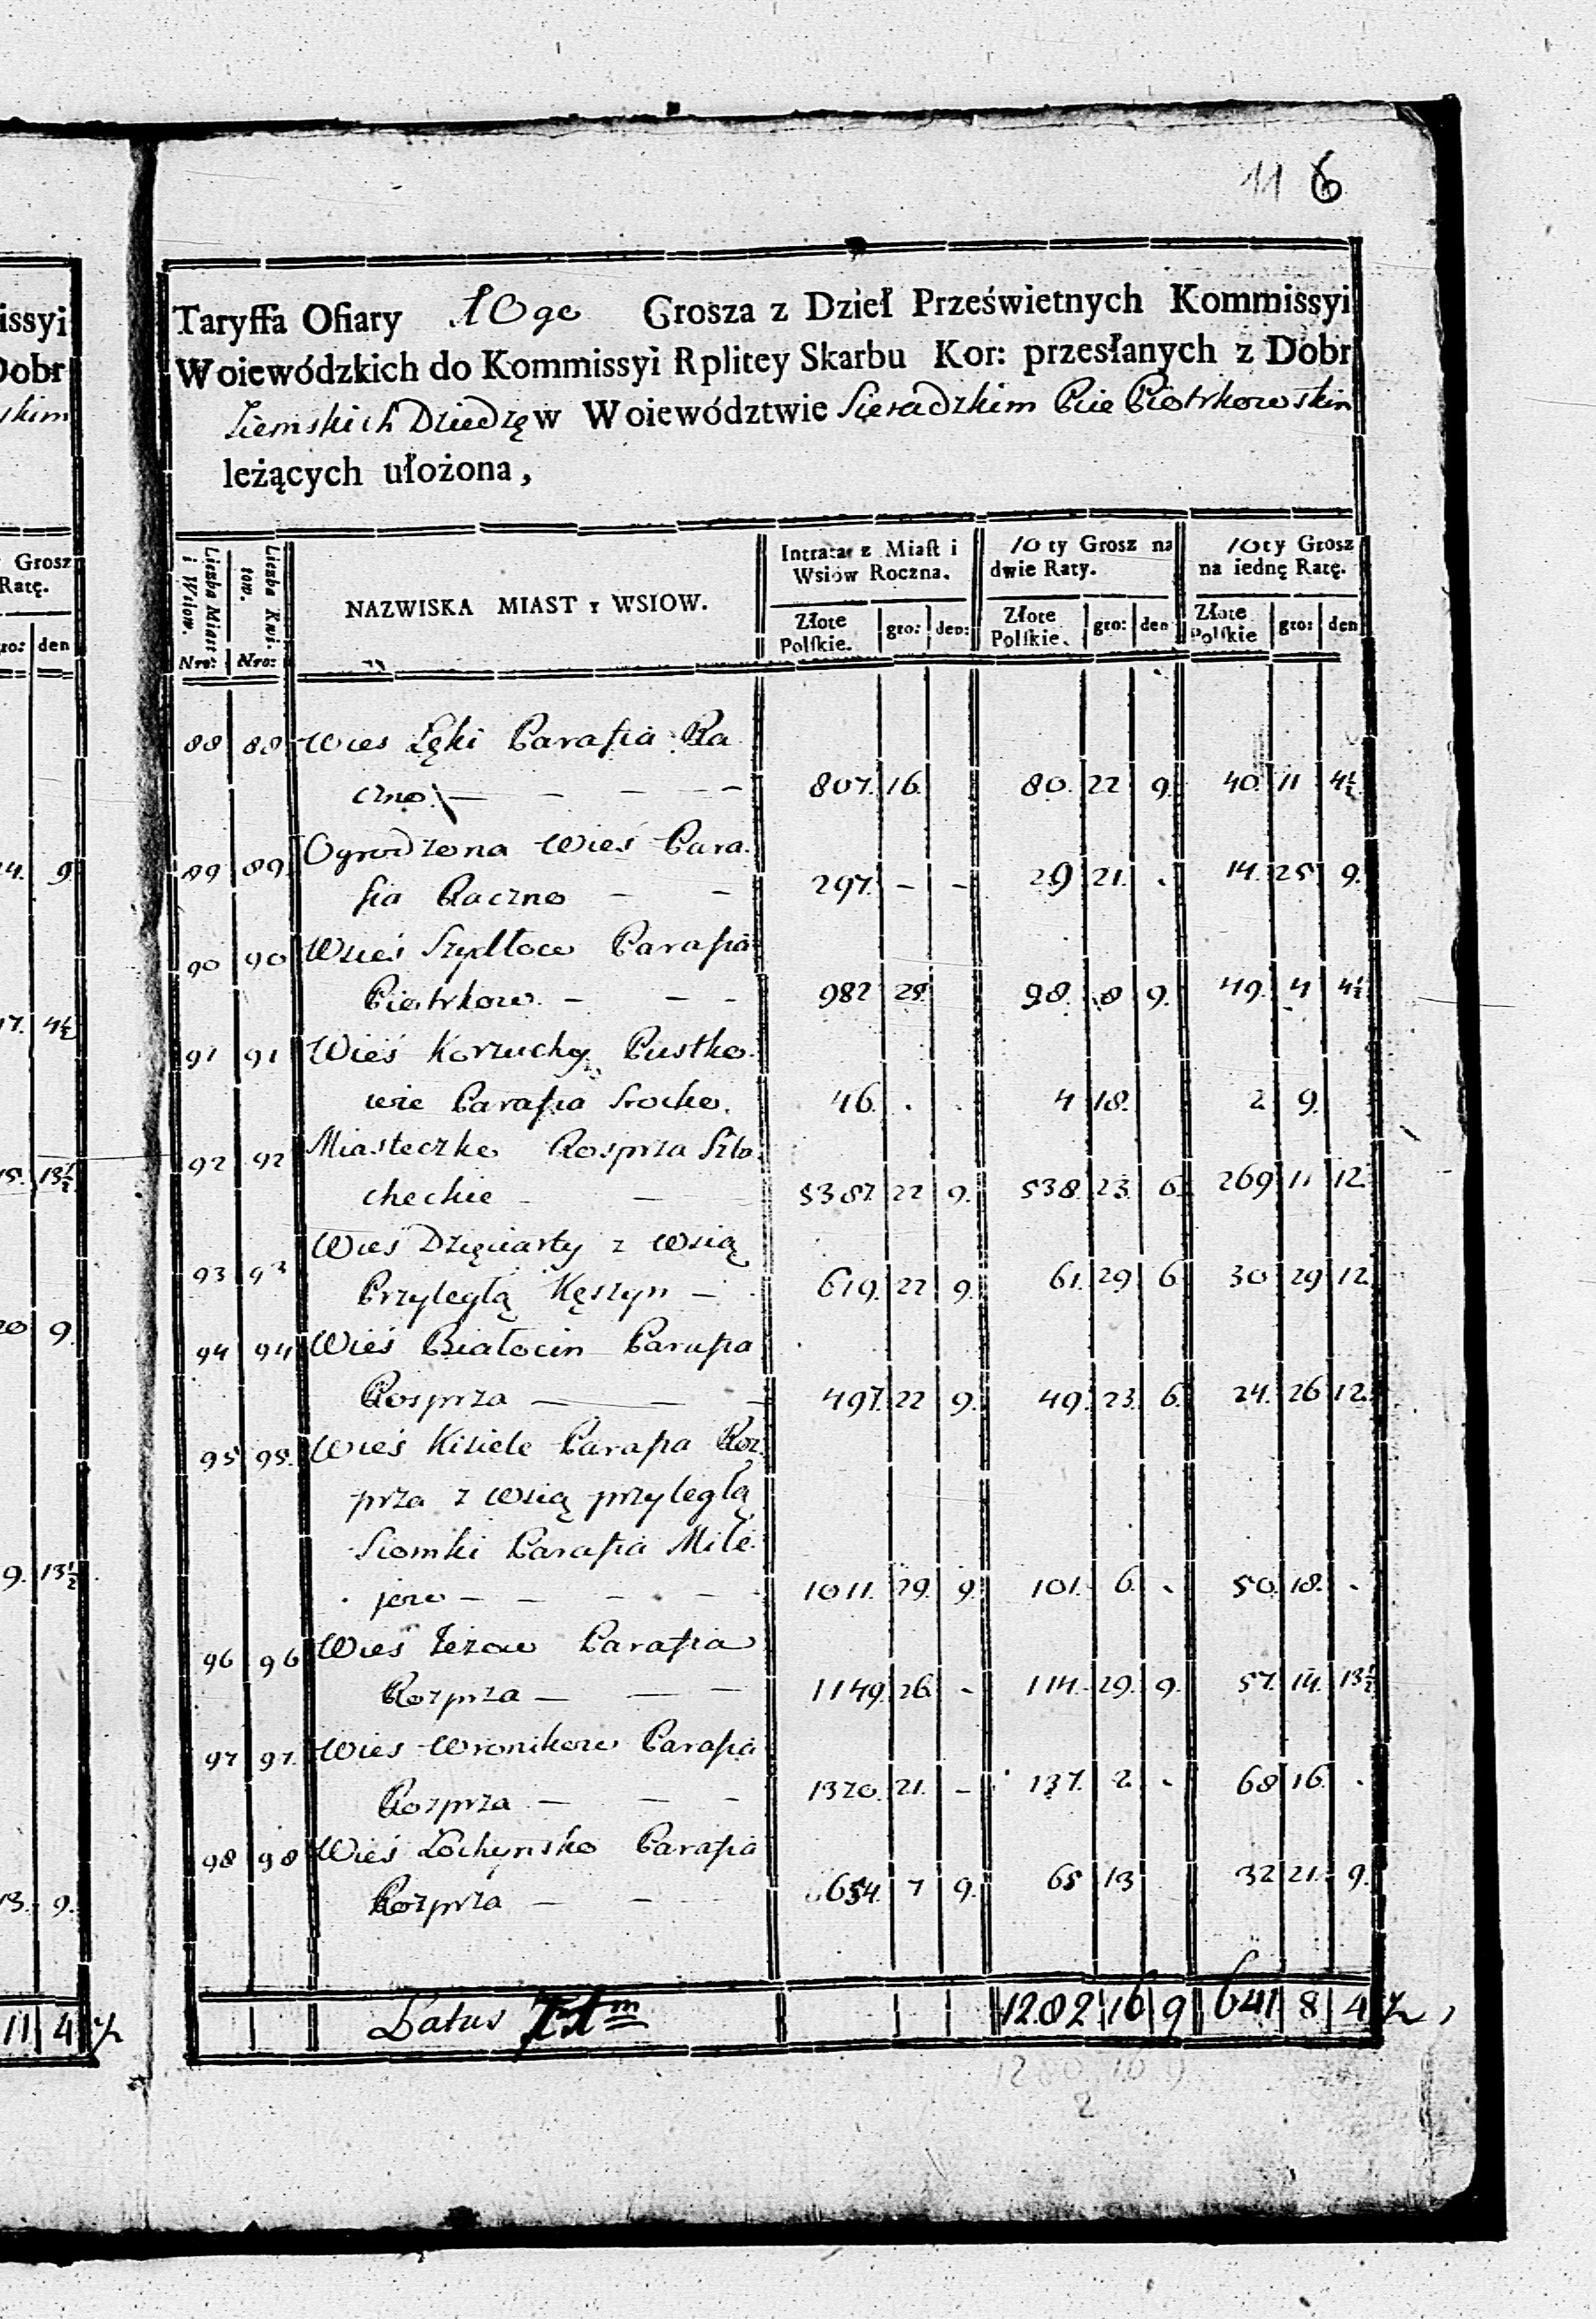 11 6
Taryffa Ofiary 10go Grosza z Dzieł Prześwietnych Kommissyi
Woiewódzkich do Kommissyi Rplitey Skarbu Kor: przesłanych z Dobr
Ziemskich Dziedzę w Woiewództwie Sieradzkim Pcie Piotrkowskim
leżących ułożona,
Liczba Miast i Wsiow. Nro: Liczba Kwi- tow. Nro: NAZWISKA MIAST Y WSIOW. Intrata z Miast i Wsiów Roczna. 10ty Grosz na dwie Raty. 10ty Grosz na iednę Ratę.
Złote Polskie. gro: den: Złote Polskie. gro: den Złote Polskie gro: den
88 88 Wies Łęki Parafia Ra
czno. — — — — 807. 16. 80. 22 9. 40. 11 4½
89 89. Ogrodzona Wieś Para.
fia Raczno — — 297. — — 29 21. . 14. 25 9.
90 90 Wieś Szydłow Parafia
Piotrkow. — — — 982 29. 98. 8 9. 49. 4 4½
91 91 Wieś Korzuchy Pustko.
wie Parafia Srocko. 46. . . 4 18. 2 9.
92 92 Miasteczko Rosprza Szla.
checkie — — 5387. 22 9. 538. 23. 6. 269 11 12.
93 93 Wieś Dzięciarty z Wsią
Przyległą Kęszyn — 619. 22 9. 61. 29 6 30 29 12.
94 94 Wieś Białocin Parafia
Rosprza — — — 497. 22 9. 49. 23. 6. 24. 26 12.
95 95. Wieś Kisiele Parafia Roz
prza z wsią przyległą
Siomki Parafia Mile
jow — — — — 1011. 29. 9. 101. 6. . 50. 18. .
96 96 Wieś Jeżow Parafia
Rozprza — — — 1149. 26. - 114. 29. 9. 57. 14. 13½
97 97. Wies Wronikow Parafia
Rozprza — — — 1370. 21. — 137. 2. . 68 16. .
98 98 Wieś Lochynsko Parafia
Rozprza — — 654. 7 9. 65 13 32 21. 9.
Latus 12.02 16 9 641 8 4 ½